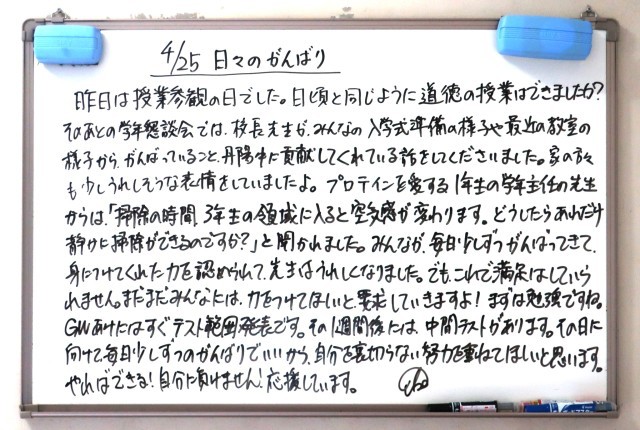 4/25 日々のがんばり
昨日は授業参観の日でした。日頃と同じように道徳の授業はできましたか?
そのあとの学年懇談会では、校長先生が、みんなの入学式準備の様子や最近の教室の
様子から、がんばっていること、丹陽中に貢献してくれている話をしてくださいました。家の方々
も少しうれしそうな表情をしていましたよ。プロテインを愛する1年生の学年主任の先生
からは、「掃除の時間、3年生の領域に入ると空気感が変わります。どうしたらあれだけ
静かに掃除ができるのですか?」と聞かれました。みんなが、毎日少しずつがんばってきて、
身につけてくれた力を認められて、先生はうれしくなりました。でも、これで満足はしていら
れません。まだまだみんなには、力をつけてほしいと要求していきますよ!まずは勉強ですね。
GWあけにはすぐテスト範囲発表です。その1週間後には、中間テストがあります。その日に
向けて、毎日少しずつのがんばりでいいから、自分を裏切らない努力を重ねてほしいと思います。
やればできる!自分に負けません!応援しています。